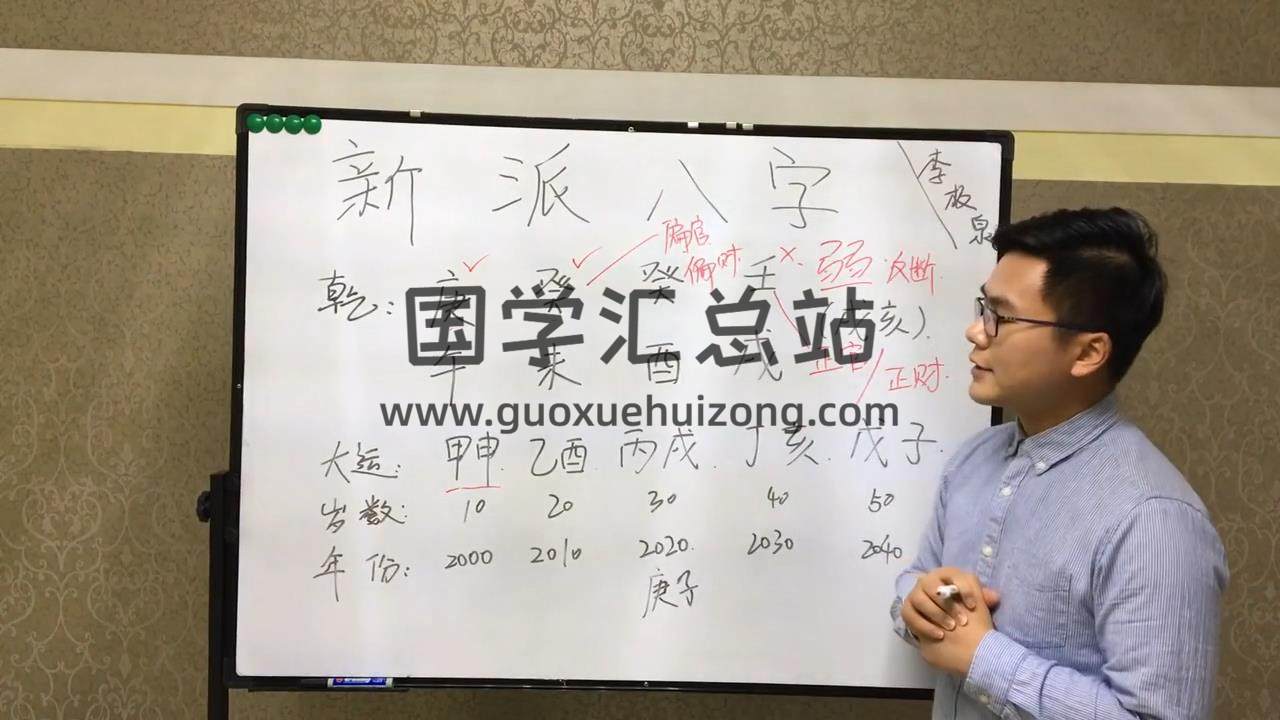 新派八字
李极泉
乾: 庚 癸 癸 壬 弱 反断
偏官
偏财
(戌亥)
午 未 酉 戌
正官
正财
国学汇总站
www.guoxuehuizong.com
大运: 甲申. 乙酉. 丙戌. 丁亥. 戊子.
岁数: 10 20 30 40 50
年份: 2000 2010 2020. 2030 2040
庚子